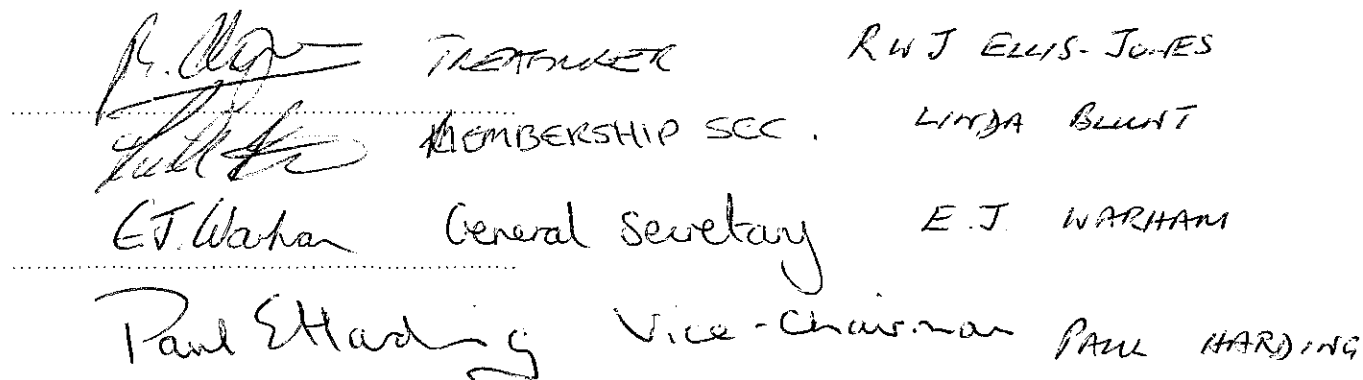 TREASURER RWJ ELLIS-JONES
MEMBERSHIP SEC. LINDA BLUNT
E.J. Warham General Secretary E.J. WARHAM
Paul E Harding Vice-Chairman PAUL HARDING